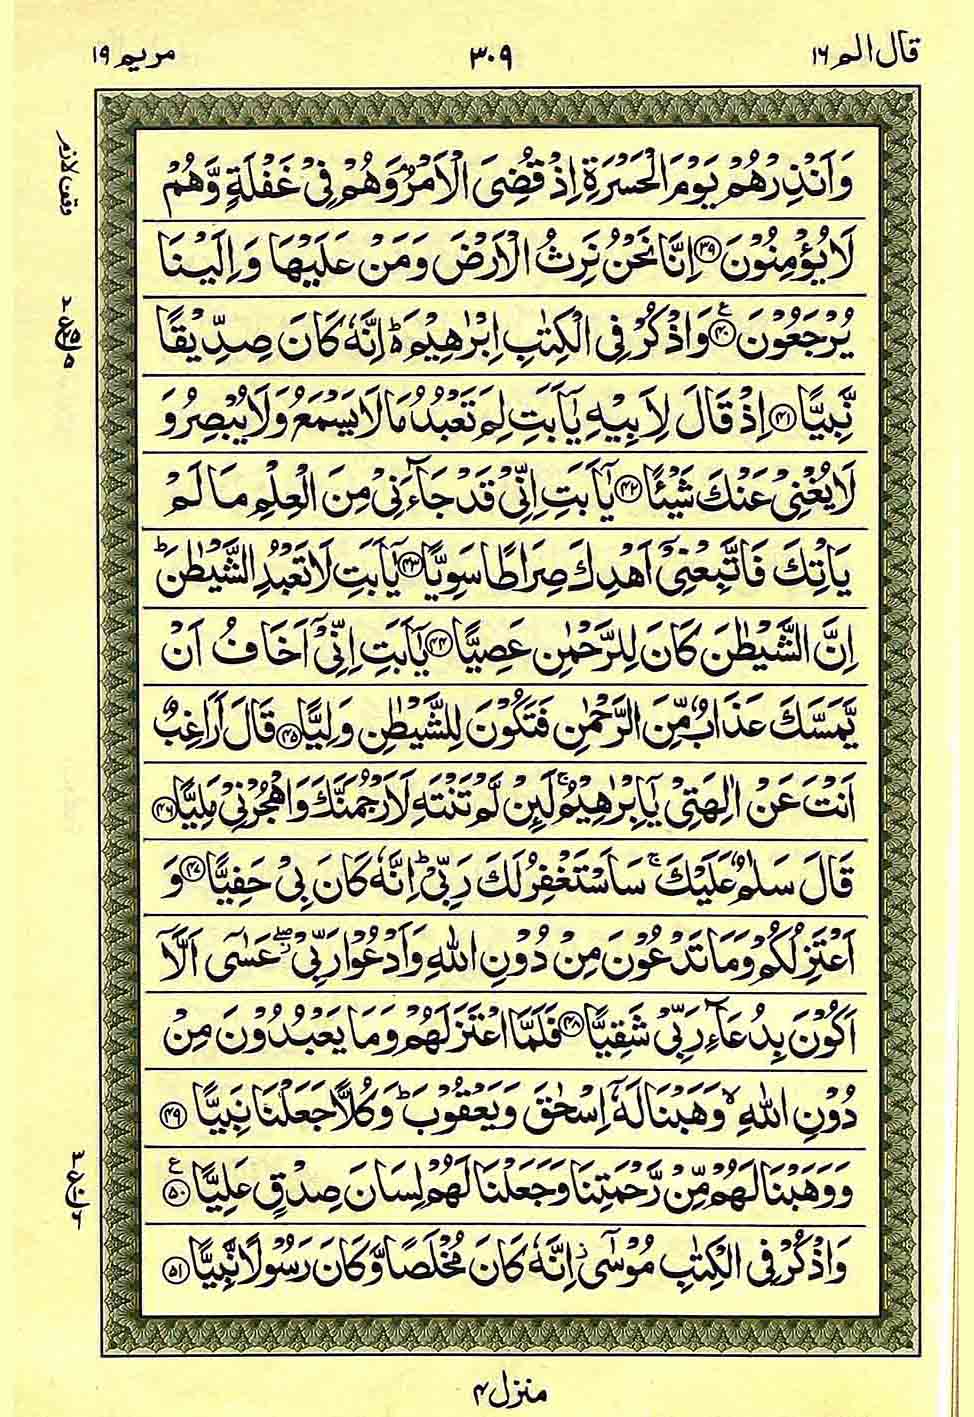 قال الم ١٦
٣٠٩
مريم ١٩
وَاَنْذِرْهُمْ يَوْمَ الْحَسْرَةِ اِذْ قُضِىَ الْاَمْرُۘ وَهُمْ فِىْ غَفْلَةٍ وَّهُمْ
وقف لازم
لَا يُؤْمِنُوْنَ ﴿٣٩﴾ اِنَّا نَحْنُ نَرِثُ الْاَرْضَ وَمَنْ عَلَيْهَا وَاِلَيْنَا
يُرْجَعُوْنَ ﴿٤٠﴾ ع وَاذْكُرْ فِى الْكِتٰبِ اِبْرٰهِيْمَ ؕ اِنَّهٗ كَانَ صِدِّيْقًا
٢ ع ٢٥ ٥
نَّبِيًّا ﴿٤١﴾ اِذْ قَالَ لِاَبِيْهِ يٰۤاَبَتِ لِمَ تَعْبُدُ مَا لَا يَسْمَعُ وَلَا يُبْصِرُ وَ
لَا يُغْنِىْ عَنْكَ شَيْئًا ﴿٤٢﴾ يٰۤاَبَتِ اِنِّىْ قَدْ جَآءَنِىْ مِنَ الْعِلْمِ مَا لَمْ
يَاْتِكَ فَاتَّبِعْنِىْۤ اَهْدِكَ صِرَاطًا سَوِيًّا ﴿٤٣﴾ يٰۤاَبَتِ لَا تَعْبُدِ الشَّيْطٰنَ ؕ
اِنَّ الشَّيْطٰنَ كَانَ لِلرَّحْمٰنِ عَصِيًّا ﴿٤٤﴾ يٰۤاَبَتِ اِنِّىْۤ اَخَافُ اَنْ
يَّمَسَّكَ عَذَابٌ مِّنَ الرَّحْمٰنِ فَتَكُوْنَ لِلشَّيْطٰنِ وَلِيًّا ﴿٤٥﴾ قَالَ اَرَاغِبٌ
اَنْتَ عَنْ اٰلِهَتِىْ يٰۤاِبْرٰهِيْمُ ۚ لَئِنْ لَّمْ تَنْتَهِ لَاَرْجُمَنَّكَ وَاهْجُرْنِىْ مَلِيًّا ﴿٤٦﴾
قَالَ سَلٰمٌ عَلَيْكَ ۚ سَاَسْتَغْفِرُ لَكَ رَبِّىْ ؕ اِنَّهٗ كَانَ بِىْ حَفِيًّا ﴿٤٧﴾ وَ
اَعْتَزِلُكُمْ وَمَا تَدْعُوْنَ مِنْ دُوْنِ اللّٰهِ وَاَدْعُوْا رَبِّىْ ۖ عَسٰۤى اَلَّاۤ
اَكُوْنَ بِدُعَآءِ رَبِّىْ شَقِيًّا ﴿٤٨﴾ فَلَمَّا اعْتَزَلَهُمْ وَمَا يَعْبُدُوْنَ مِنْ
دُوْنِ اللّٰهِ ۙ وَهَبْنَا لَهٗۤ اِسْحٰقَ وَيَعْقُوْبَ ؕ وَكُلًّا جَعَلْنَا نَبِيًّا ﴿٤٩﴾
وَوَهَبْنَا لَهُمْ مِّنْ رَّحْمَتِنَا وَجَعَلْنَا لَهُمْ لِسَانَ صِدْقٍ عَلِيًّا ﴿٥٠﴾ ع
٣ ع ١٠ ٦
وَاذْكُرْ فِى الْكِتٰبِ مُوْسٰٓى ز اِنَّهٗ كَانَ مُخْلَصًا وَّكَانَ رَسُوْلًا نَّبِيًّا ﴿٥١﴾
منزل ٤